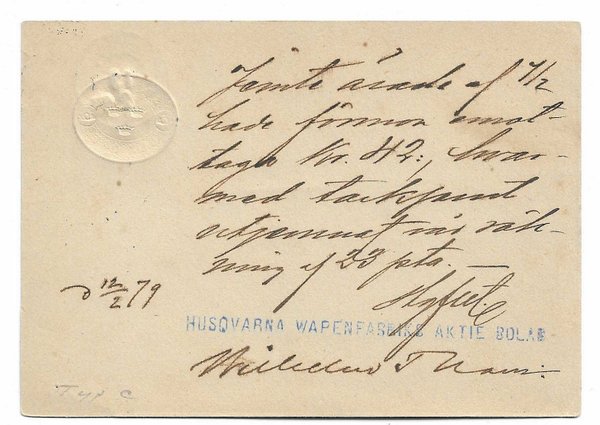 Jemte ärade af 7/2
hade förmon emot-
taga Kr. 42:, hvar-
med tacksamt
utjemnat vår räk-
ning af 23 pto.
d 12/2 79
HUSQVARNA WAPENFABRIKS AKTIE BOLAG
Wilhelm Tham.
Typ C